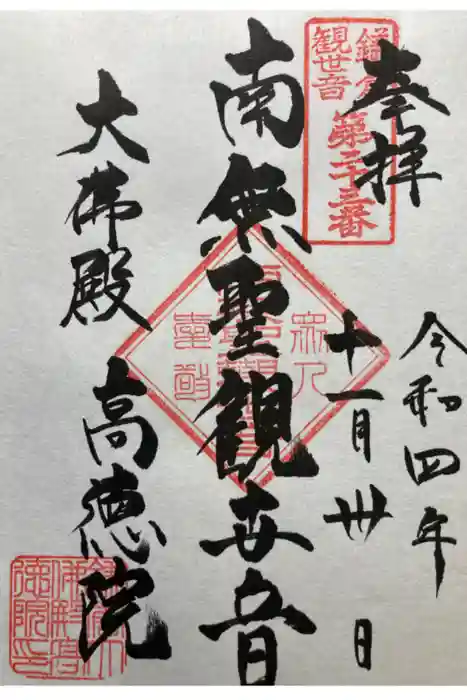 奉拝
令和四年
十一月卅日
鎌倉
観世音
第二十三番
南無聖観世音
大佛殿
高徳院